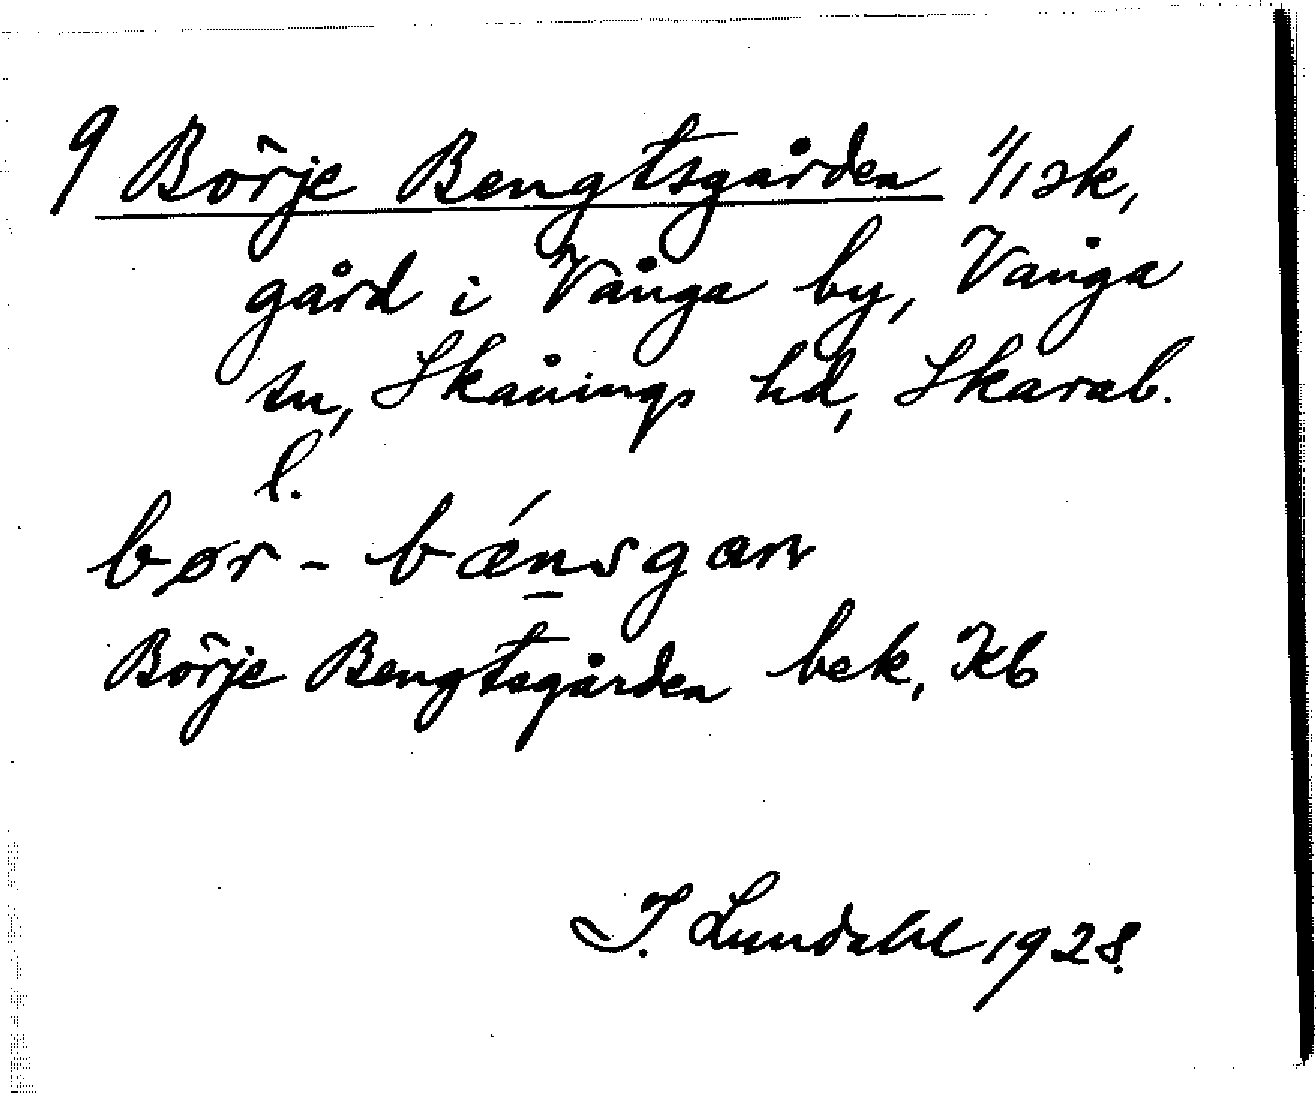 9 Börje Bengtsgården 1/1 sk,
gård i Vånga by, Vånga
sn, Skånings hd, Skarab.
l.
bør - bǽnsgarn
Börje Bengtsgården bek, Kb
I. Lundahl 1928.